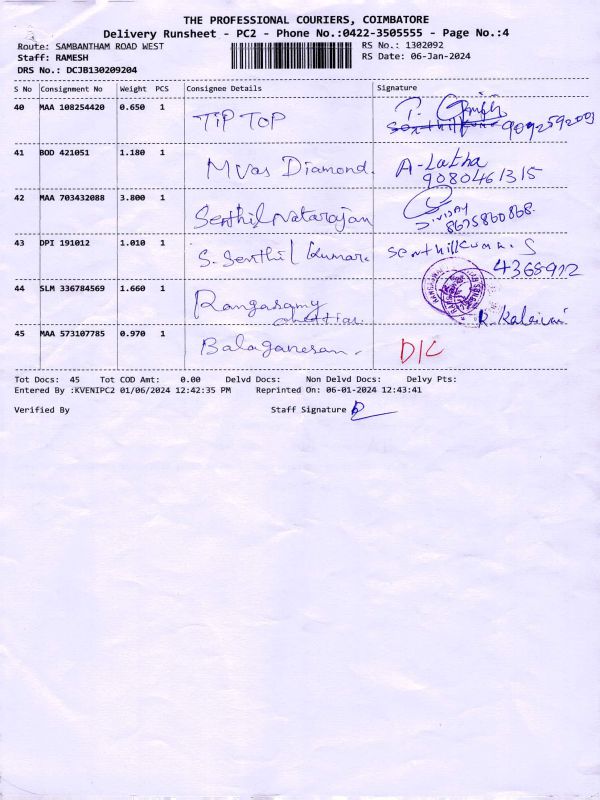 THE PROFESSIONAL COURIERS, COIMBATORE
Delivery Runsheet - PC2 - Phone No.:0422-3505555 - Page No.:4
Route: SAMBANTHAM ROAD WEST RS No.: 1302092
Staff: RAMESH RS Date: 06-Jan-2024
DRS No.: DCJB130209204
S No Consignment No Weight PCS Consignee Details Signature
40 MAA 108254420 0.650 1 TIP TOP
9092592009
41 BOD 421051 1.180 1 Mvas Diamond. A-Latha
9080461315
42 MAA 703432088 3.800 1 Senthil Natarajan
8675860868.
43 DPI 191012 1.010 1 S. Senthil Kumar. Senthilkumar. S
4368912
44 SLM 336784569 1.660 1 Rangasamy
chettiar R. Kalaivani
45 MAA 573107785 0.970 1 Balaganesan. D/C
Tot Docs: 45 Tot COD Amt: 0.00 Delvd Docs: Non Delvd Docs: Delvy Pts:
Entered By :KVENIPC2 01/06/2024 12:42:35 PM Reprinted On: 06-01-2024 12:43:41
Verified By Staff Signature